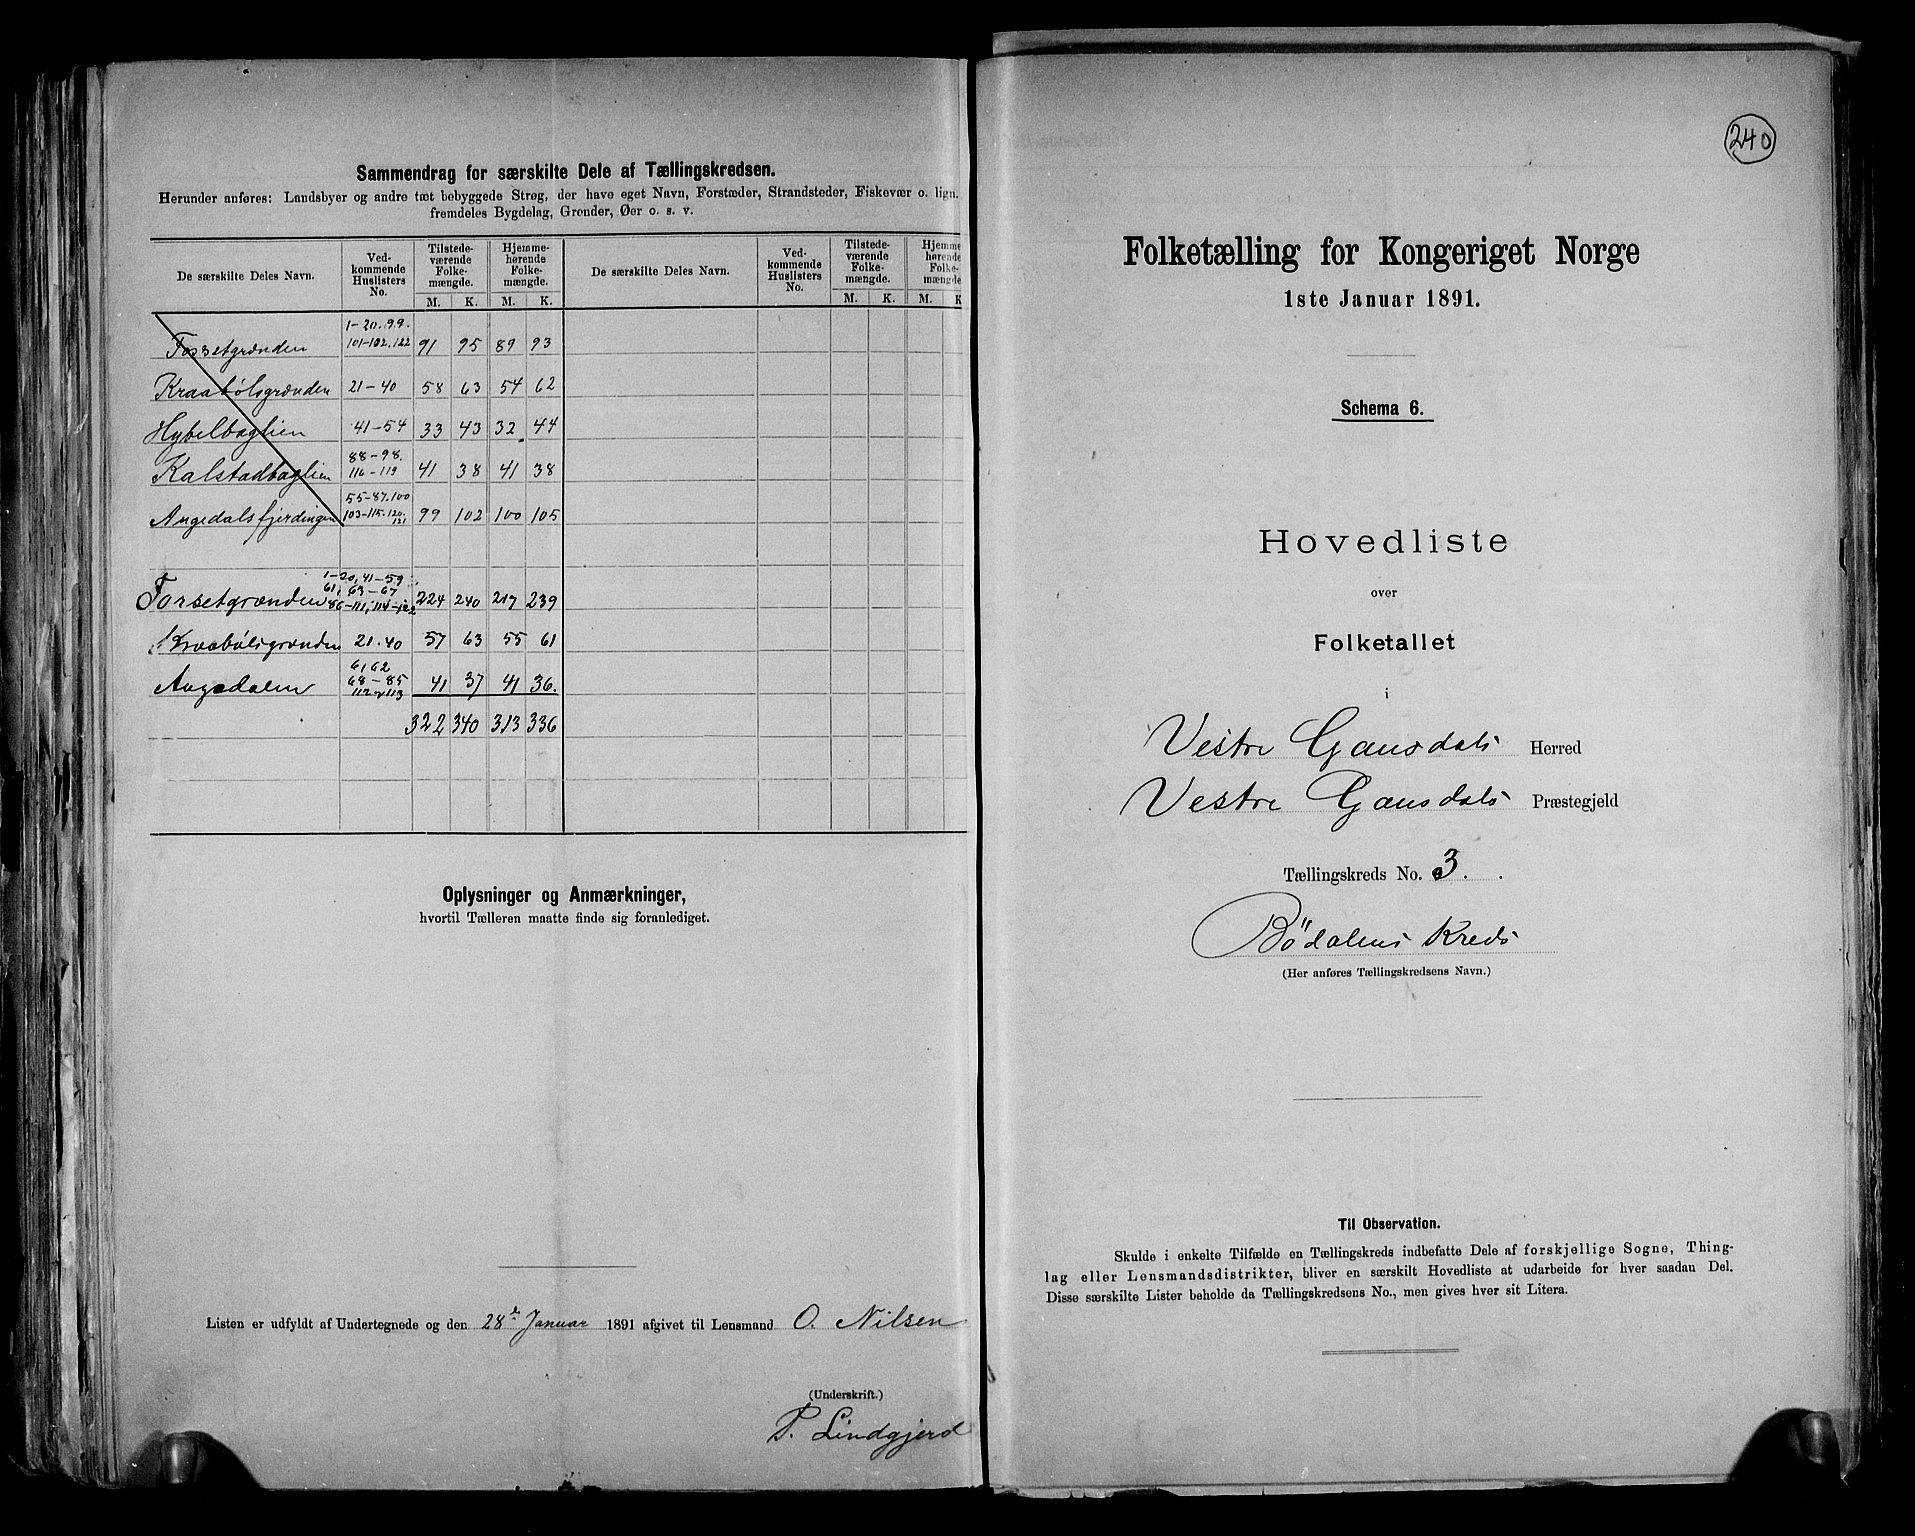 Sammendrag for særskilte Dele af Tællingskredsen.
Herunder anføres: Landsbyer og andre tæt bebyggede Strøg, der have eget Navn, Forstæder, Strandsteder, Fiskevær o. lign.
fremdeles Bygdelag, Grender, Øer o. s. v.
De særskilte Deles Navn. Vedkommende Huslisters No. Tilstedeværende Folkemængde. M. K. Hjemmehørende Folkemængde. M. K. De særskilte Deles Navn. Vedkommende Huslisters No. Tilstedeværende Folkemængde. M. K. Hjemmehørende Folkemængde M. K
Forsetgrænden 1-20. 99. 101-102. 122 91 95 89 93
Kraabølsgrænden 21-40 58 63 54 62
Hybelbaglien 41-54 33 43 32 44
Kalstadbaglien 88-98. 116-119 41 38 41 38
Augedalsfjerdingen 55-87. 100 103-115. 120. 121 99 102 100 105
Forsetgrænden 1-20, 41-59, 61, 63-67 86-111, 114-122 224 240 217 239
Kraabølsgrænden 21.40 57 63 55 61
Augedalen 61 62 68-85 112 113 41 37 41 36.
322 340 313 336
Oplysninger og Anmærkninger,
hvortil Tælleren maatte finde sig foranlediget.
Listen er udfyldt af Undertegnede og den 28de Januar 1891 afgivet til Lensmand O. Nilsen
(Underskrift.)
P. Lindgjerd
240
Folketælling for Kongeriget Norge
1ste Januar 1891.
Schema 6.
Hovedliste
over
Folketallet
i
Vestre Gausdals Herred
Vestre Gausdals Præstegjeld
Tællingskreds No. 3.
Bødalens Kreds
(Her anføres Tællingskredsens Navn.)
Til Observation.
Skulde i enkelte Tilfælde en Tællingskreds indbefatte Dele af forskjellige Sogne, Thing-
lag eller Lensmandsdistrikter, bliver en særskilt Hovedliste at udarbeide for hver saadan Del.
Disse særskilte Lister beholde da Tællingskredsens No., men gives hver sit Litera.